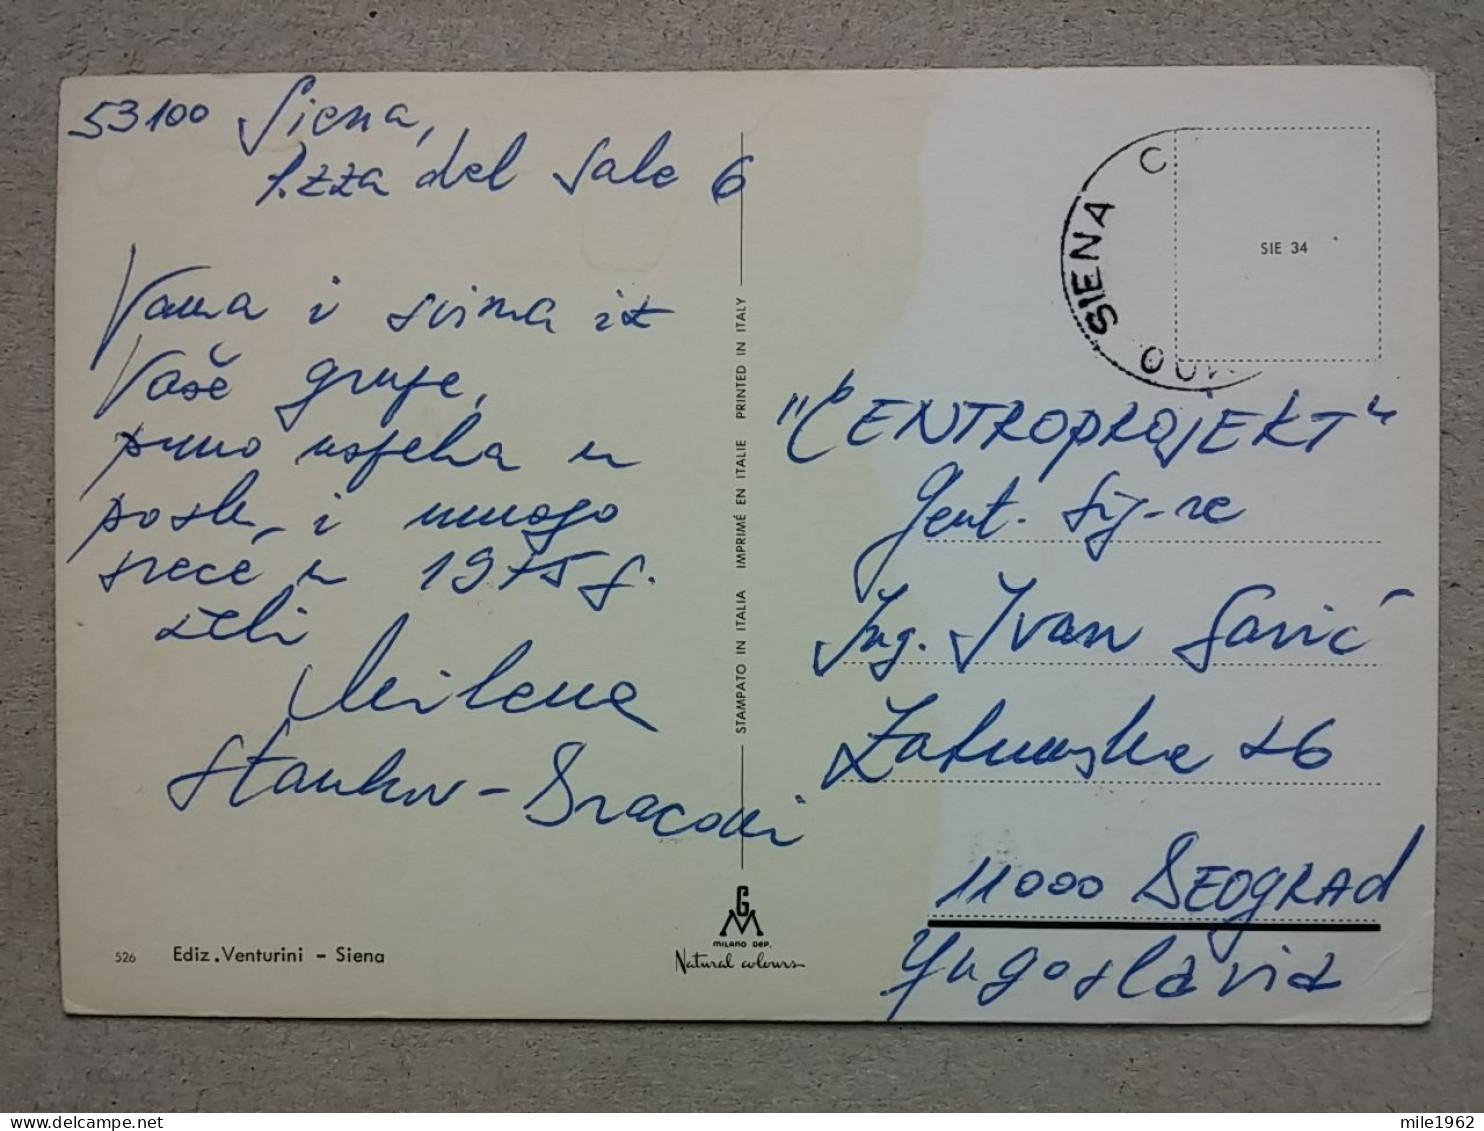 53100 Siena,
P.zza del Sale 6
Vama i svima iz
Vaše grupe,
puno uspjeha u
poslu i mnogo
sreće u 1975 g.
želi
Milena
Stankov - Bracons
STAMPATO IN ITALIA IMPRIMÉ EN ITALIE PRINTED IN ITALY
SIENA C
SIE 34
"CENTROPROJEKT"
Gent. Sig-re
Ing. Ivan Savić
Zahumska 26
11000 BEOGRAD
Yugoslavia
526 Ediz. Venturini - Siena
GM
MILANO DEP.
Natural colours
mile1962